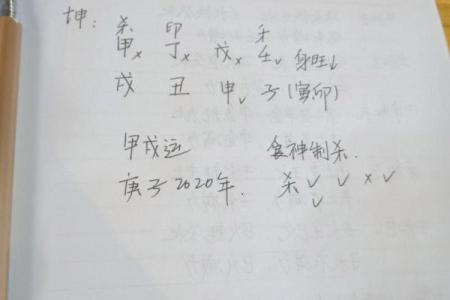 坤：杀 印 才
甲× 丁× 戊× 壬✓ 身旺↓
戌 丑 申✓ 子(寅卯)
甲戌运 食神制杀.
庚子2020年. 杀✓✓×✓
✓